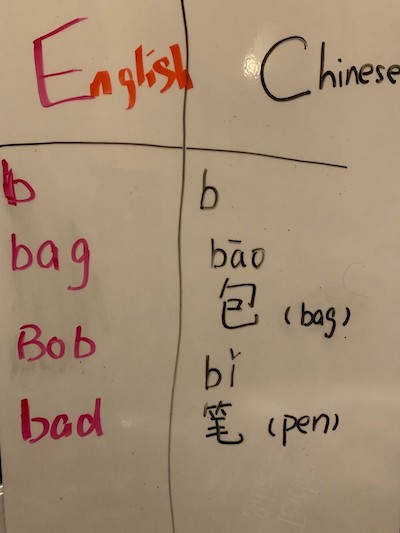 English
Chinese
b
b
bag
bāo
包 (bag)
Bob
bǐ
bad
笔 (pen)